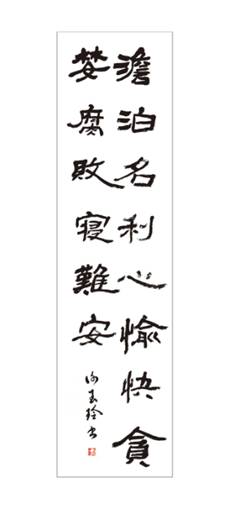 澹泊名利心愉快貪
婪腐敗寢難安